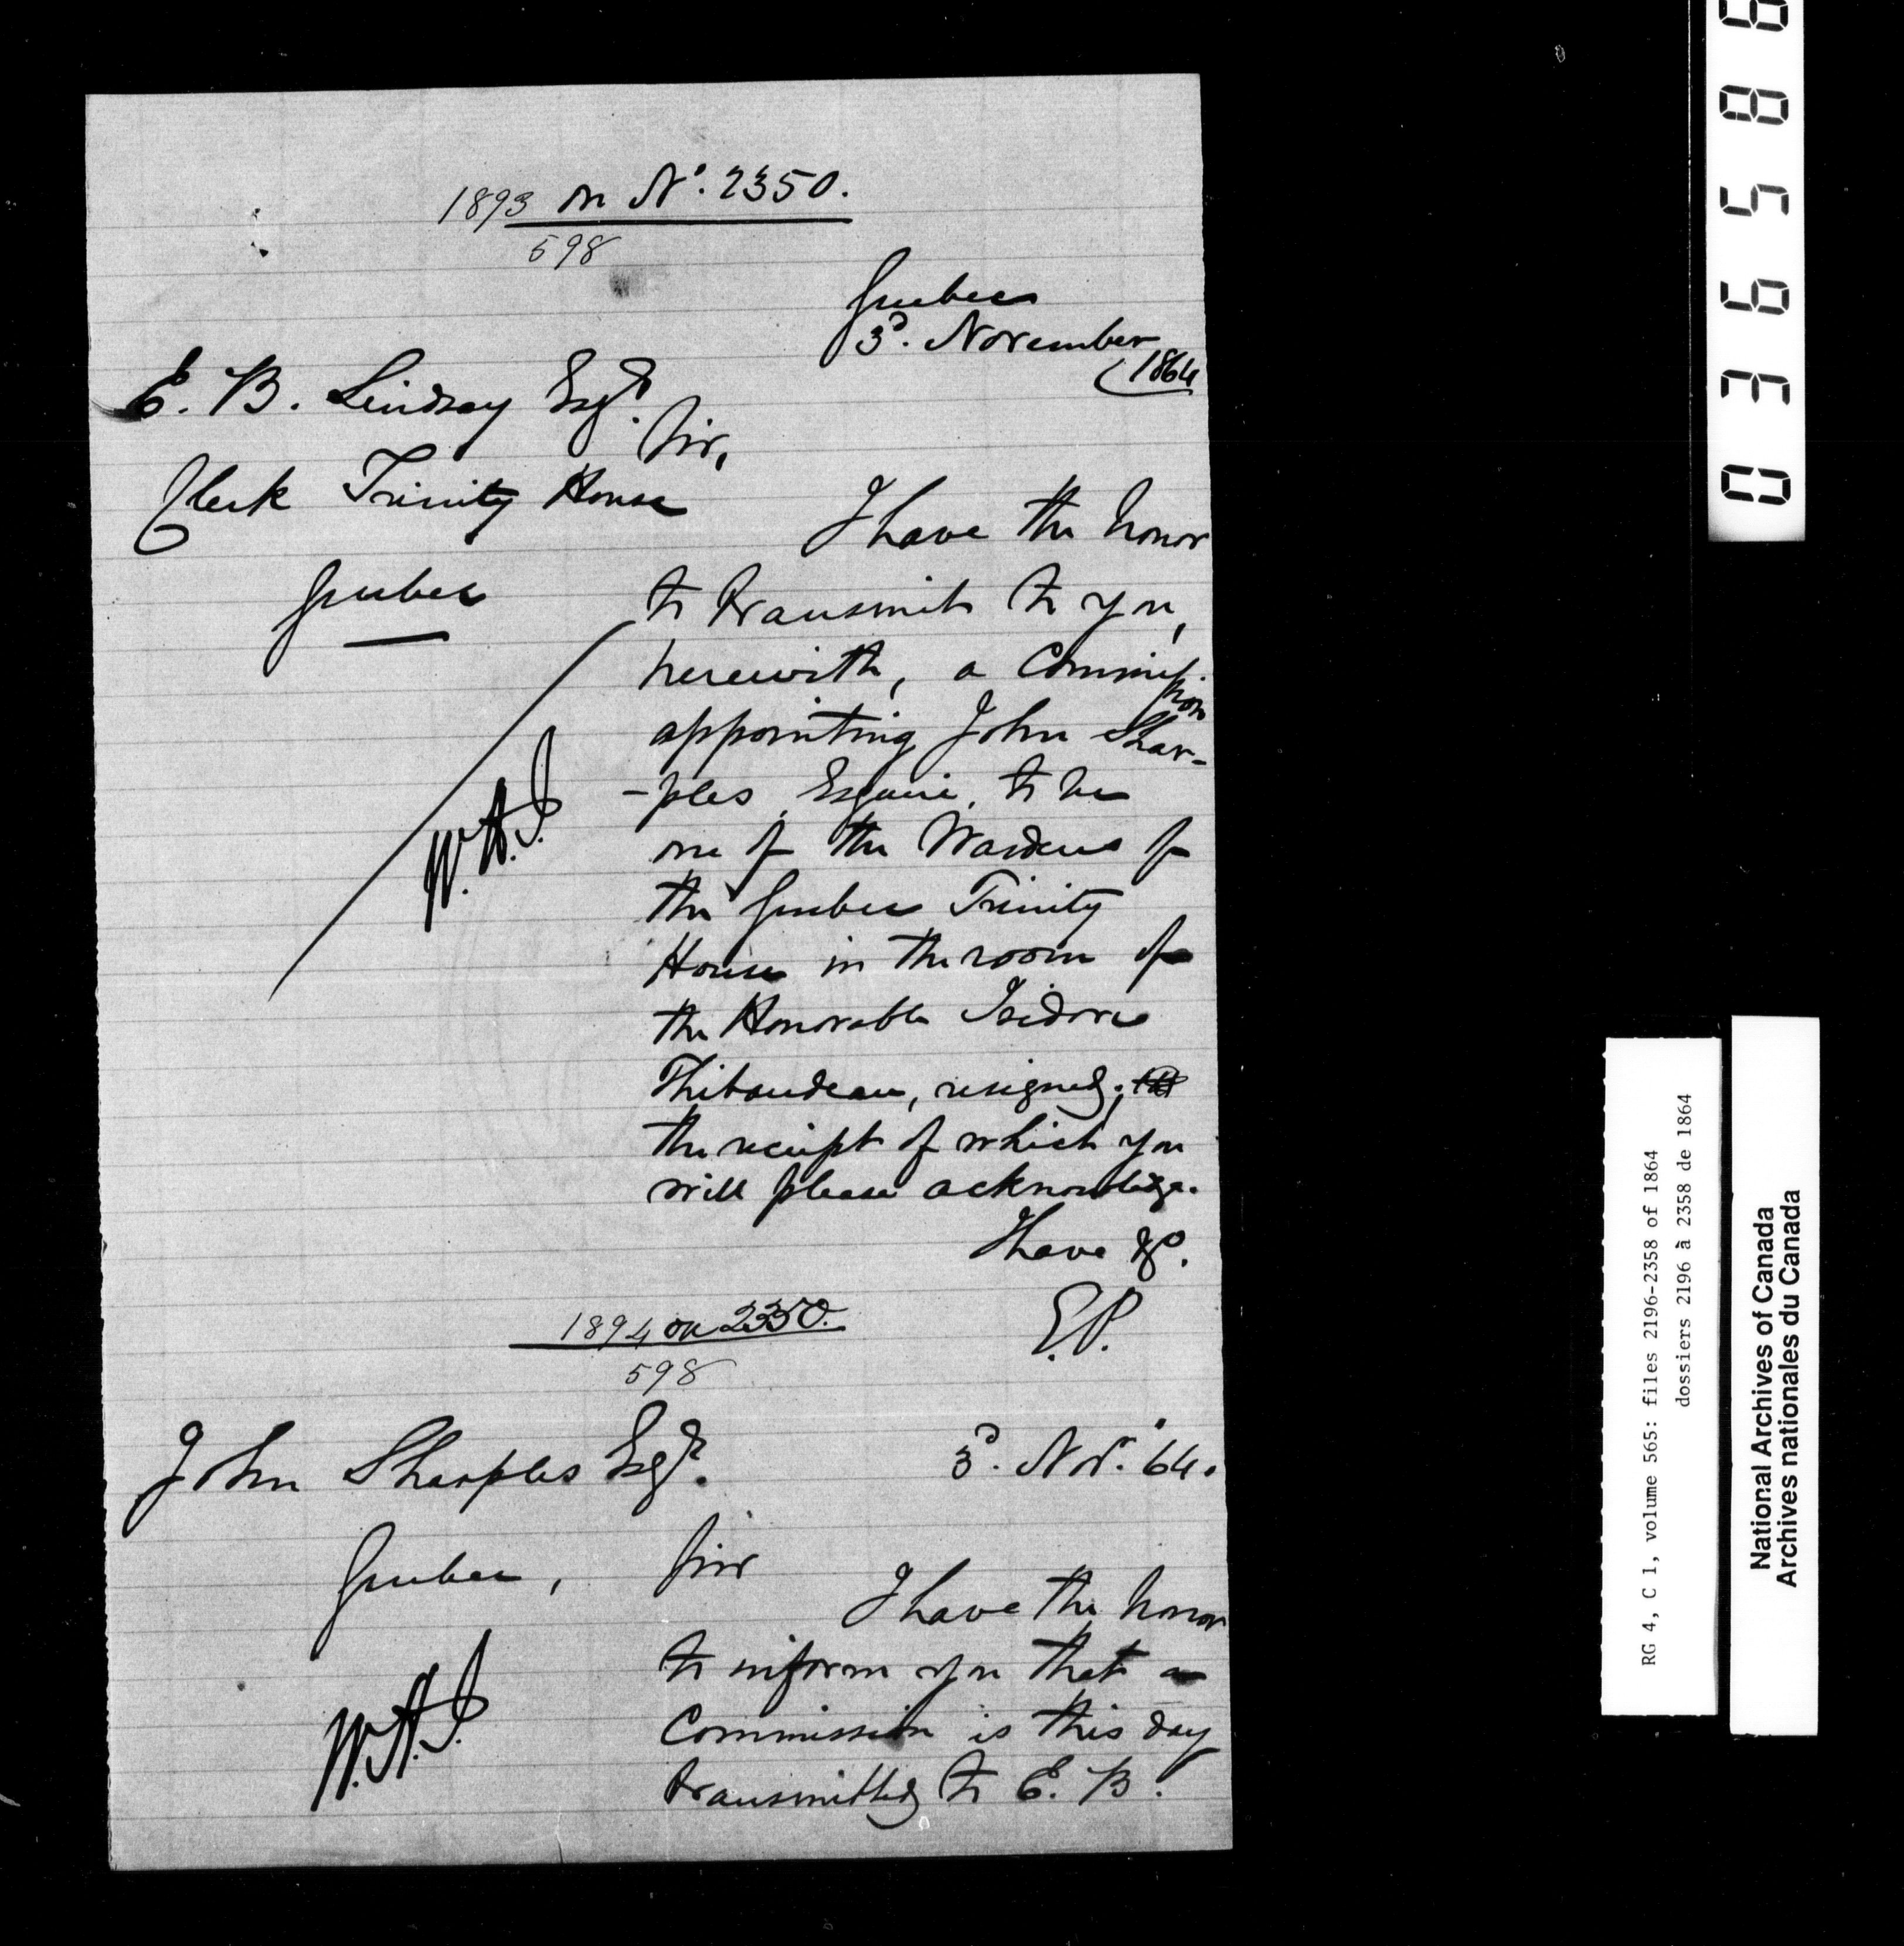 1893 on No. 2350.
598
Quebec
3d. November
1864
E. B. Lindsay Esqr.
Sir,
Clerk Trinity House
Quebec
I have the honor
to transmit to you,
herewith, a Commission
appointing John Shar-
-ples, Esquire, to be
one of the Wardens of
the Quebec Trinity
House in the room of
the Honorable Isidore
Thibaudeau, resigned;
the receipt of which you
will please acknowledge.
I have &c.
E.P.
W.H.J.
1894 on 2350.
598
John Sharples Esqr.
3d. Novr. '64.
Quebec,
Sir
I have the honor
to inform you that a
Commission is this day
transmitted to E. B.
W.H.J.
036586
RG 4, C 1, volume 565: files 2196-2358 of 1864
dossiers 2196 à 2358 de 1864
National Archives of Canada
Archives nationales du Canada